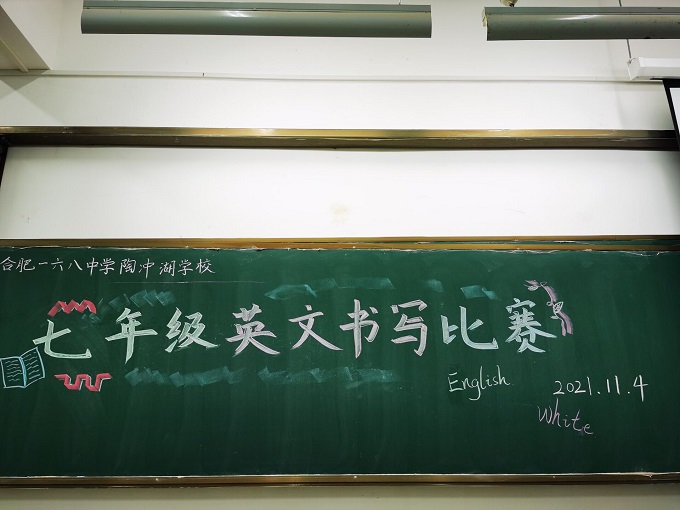 合肥一六八中学陶冲湖学校
七年级英文书写比赛
English
2021.11.4
White